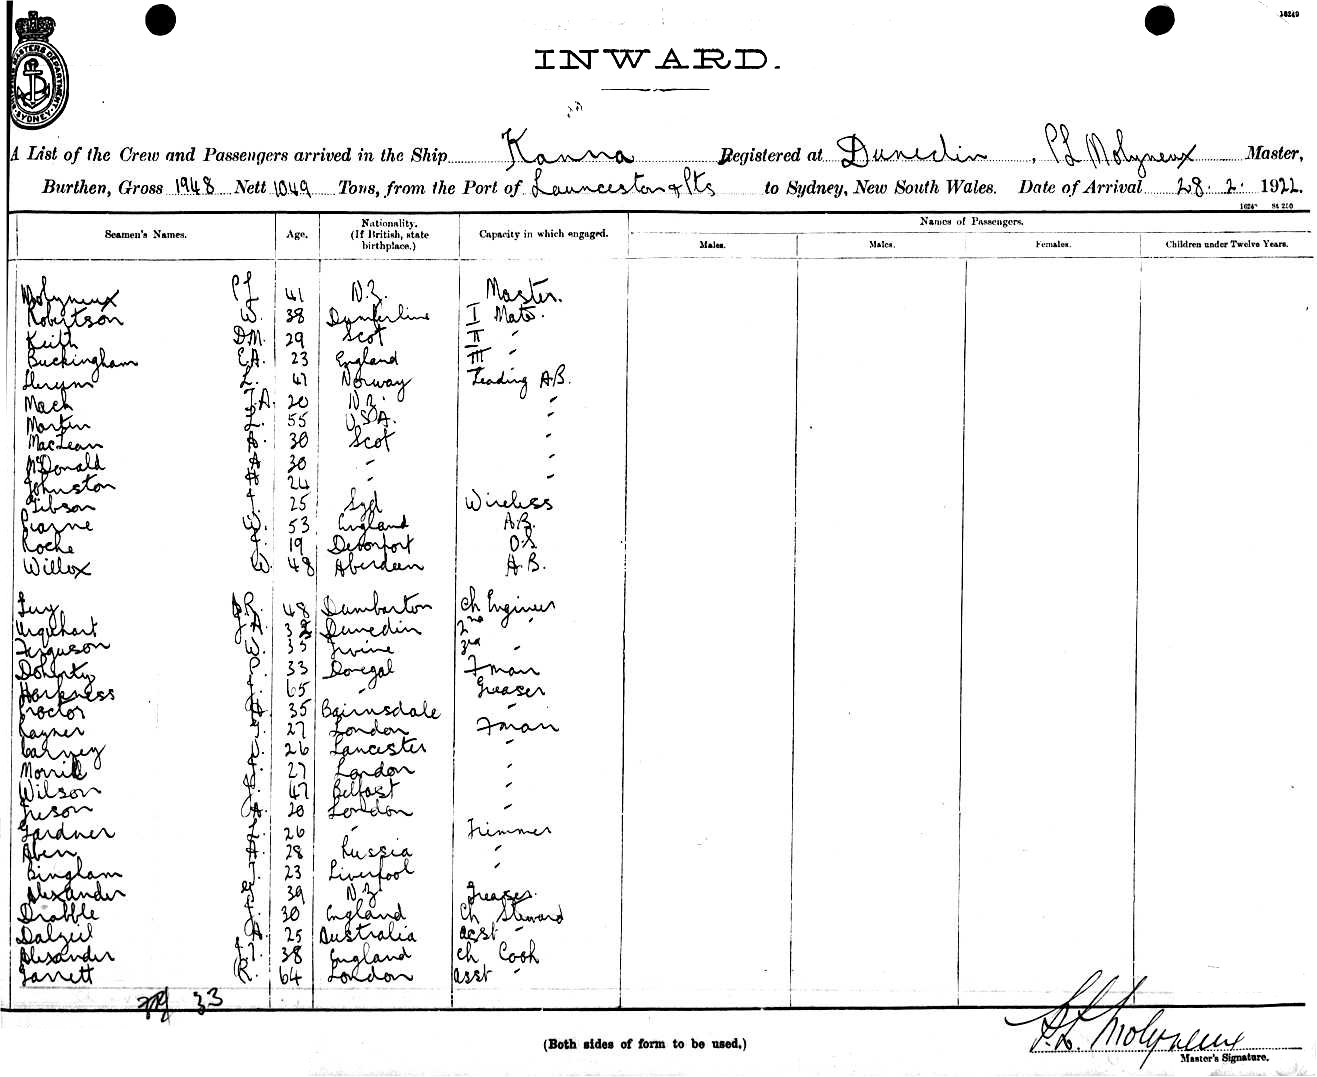 16249
SHIPPING MASTERS DEPARTMENT SYDNEY
INWARD.
A List of the Crew and Passengers arrived in the Ship Kanna Registered at Dunedin, P L Molyneux Master,
Burthen, Gross 1948 Nett 1049 Tons, from the Port of Launceston & Pts to Sydney, New South Wales. Date of Arrival 28. 2. 1922.
Seamen's Names. Age. Nationality. (If British, state birthplace.) Capacity in which engaged. Names of Passengers.
Males. Males. Females. Children under Twelve Years.
Molyneux P L 41 N.Z. Master.
Robertson W. 38 Dumferline I Mate.
Keith D.M. 29 Scot II "
Buckingham E.A. 23 England III "
L. 41 Norway Leading A.B.
Mack J.A. 20 N.Z. "
Martin L. 55 U.S.A. "
MacLean A. 30 Scot "
McDonald A 30 " "
Johnston A 24 " "
Gibson J. 25 Syd Wireless
W. 53 England A.B.
Roche J. 19 Devonport O.S
Willox W. 48 Aberdeen A.B.
Guy J R. 48 Dumbarton Ch Engineer
Urquhart J A. 32 Dunedin 2nd "
Ferguson W. 35 Irvine 3rd "
Doherty P. 33 Donegal Fman
Harkness J. 65 " Greaser
Proctor A. 35 Bairnsdale
Rayner J. 27 London Fman
Carney D. 26 Lancaster "
Morrill J. 27 London "
Wilson J. 47 Belfast "
A. 20 London "
Gardner L. 26 " Trimmer
Aben A. 28 Russia "
Bingham J. 23 Liverpool "
Alexander 39 N.Z Greaser.
Drabble J. 30 England Ch Steward
Dalziel A. 25 Australia asst "
Alexander J.T. 38 England Ch Cook
Garrett R. 64 London asst "
33
P.L. Molyneux
(Both sides of form to be used.)
Master's Signature.